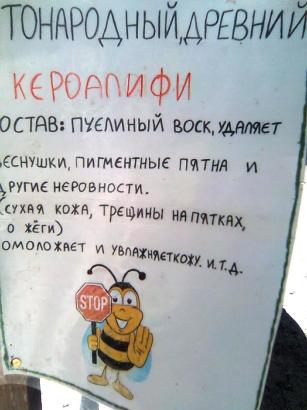 ТОНАРОДНЫЙ,ДРЕВНИЙ
КЕРОАПИФИ
ОСТАВ: ПУЕЛИНЫЙ ВОСК, УДАЛЯЕТ
ЕСНУШКИ, ПИГМЕНТНЫЕ ПЯТНА И
ДРУГИЕ НЕРОВНОСТИ.
(СУХАЯ КОЖА, ТРЕЩИНЫ НА ПЯТКАХ,
О ЖЁГИ)
ОМОЛОЖАЕТ И УВЛАЖНЯЕТКОЖУ. И.Т.Д.
STOP